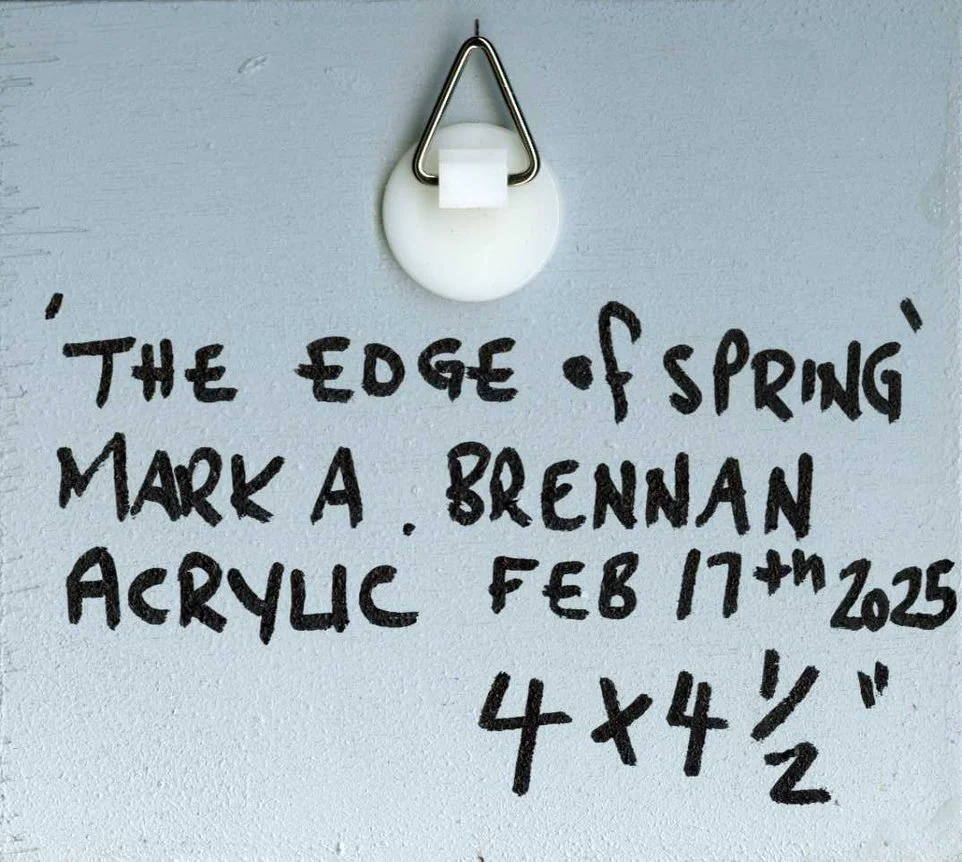 'THE EDGE of SPRING'
MARK A. BRENNAN
ACRYLIC FEB 17th 2025
4 x 4 1/2"